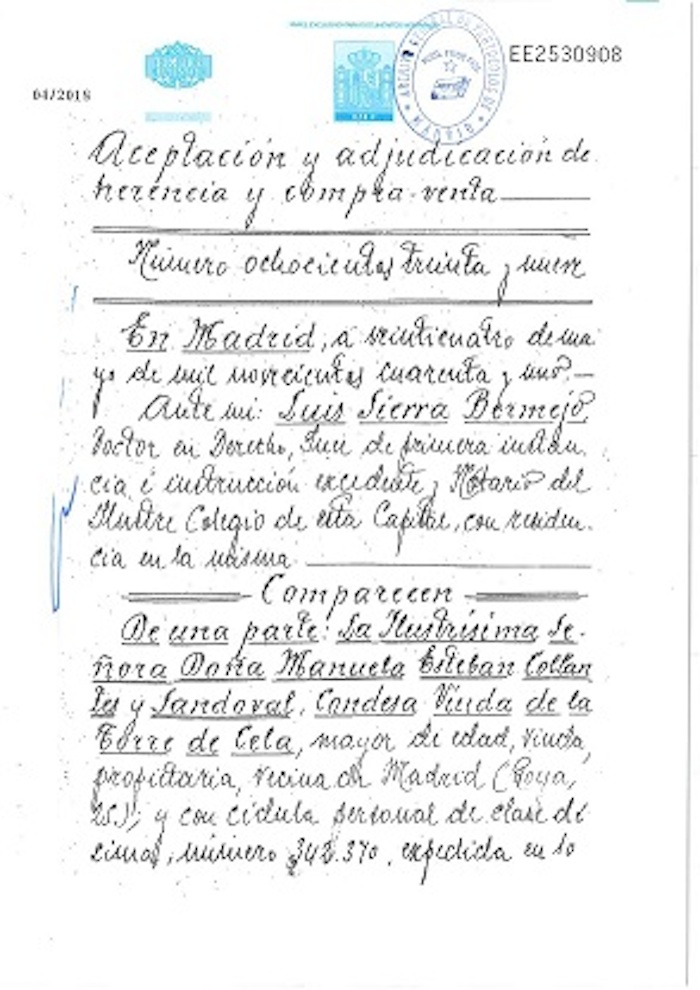 PAPEL EXCLUSIVO PARA DOCUMENTOS NOTARIALES
EE2530908
04/2018
TIMBRE
DEL ESTADO
ARCHIVO DE PROTOCOLOS DE
MADRID
NIHIL PRIUS FIDE
Aceptación y adjudicación de
herencia y compra-venta
Número ochocientos treinta y nueve
En Madrid, a veinticuatro de ma
yo de mil novecientos cuarenta y uno.—
Ante mi: Luis Sierra Bermejo,
Doctor en Derecho, Juez de primera instan-
cia é instrucción excedente y Notario del
Ilustre Colegio de esta Capital, con residen-
cia en la misma
Comparecen
De una parte: La Ilustrísima Se-
ñora Doña Manuela Esteban Collan
tes y Sandoval, Condesa Viuda de la
Torre de Cela, mayor de edad, viuda,
propietaria, vecina de Madrid (Goya,
25.); y con cédula personal de clase dé
cima, número 342.370, expedida en lo